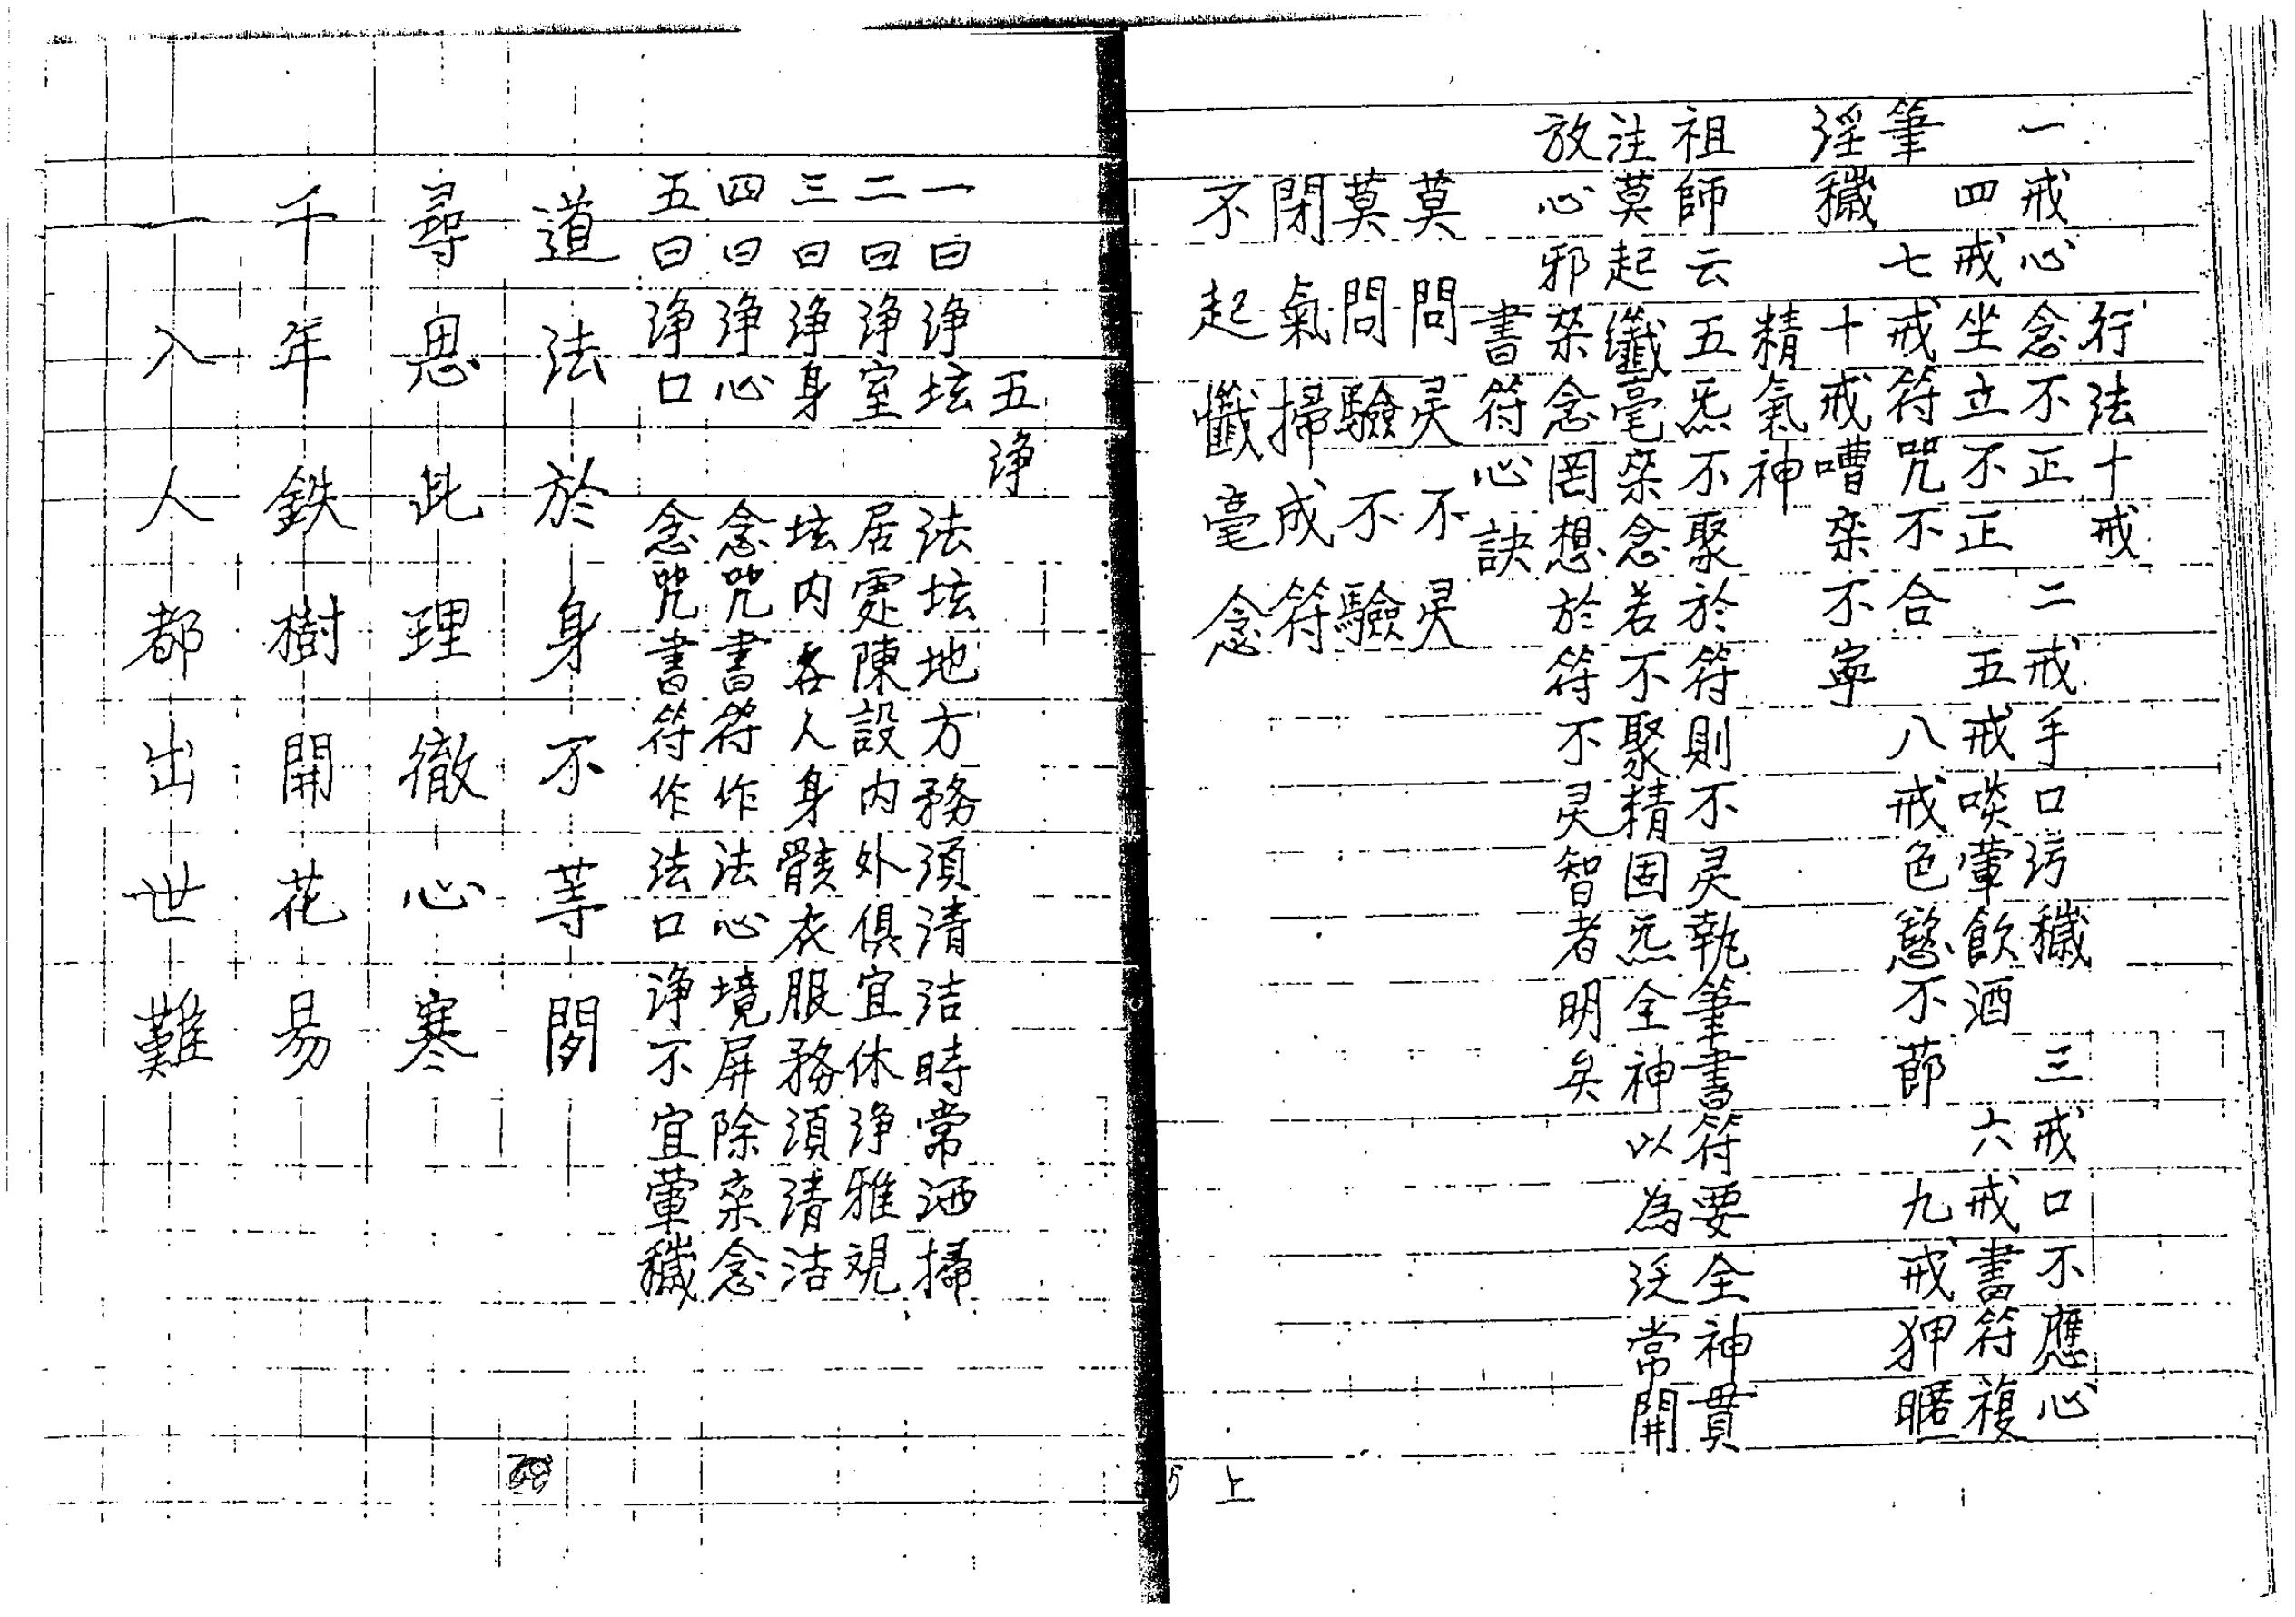 行法十戒
一戒心念不正　二戒手口污穢　三戒口不應心
四戒坐立不正　五戒啖葷飲酒　六戒書符複
筆　七戒符咒不合　八戒色慾不節　九戒狎暱
淫穢　十戒嘈杂不寧
精氣神
祖師云五炁不聚於符則不灵執筆書符要全神貫
注莫起纖毫杂念若不聚精固炁全神以為泛常開
放心邪杂念罔想於符不灵智者明矣
書符心訣
莫問灵不灵
莫問驗不驗
閉氣掃成符
不起懺毫念
5上
五淨
一曰淨坛　法坛地方務須清洁時常洒掃
二曰淨室　居處陳設内外俱宜休淨雅視
三曰淨身　坛内各人身骸衣服務須清洁
四曰淨心　念咒書符作法心境屏除杂念
五曰淨口　念咒書符作法口淨不宜葷穢
道法於身不等閑
尋思此理徹心寒
千年鉄樹開花易
一入人都出世難